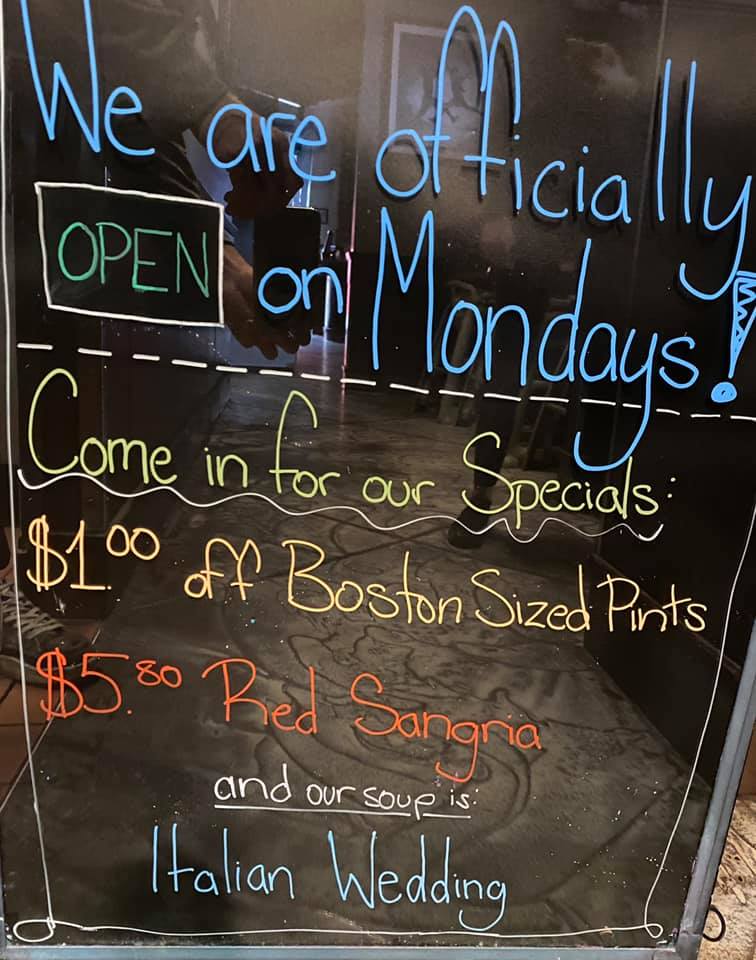 We are officially
OPEN on Mondays!
Come in for our Specials:
$1.00 off Boston Sized Pints
$5.80 Red Sangria
and our soup is:
Italian Wedding